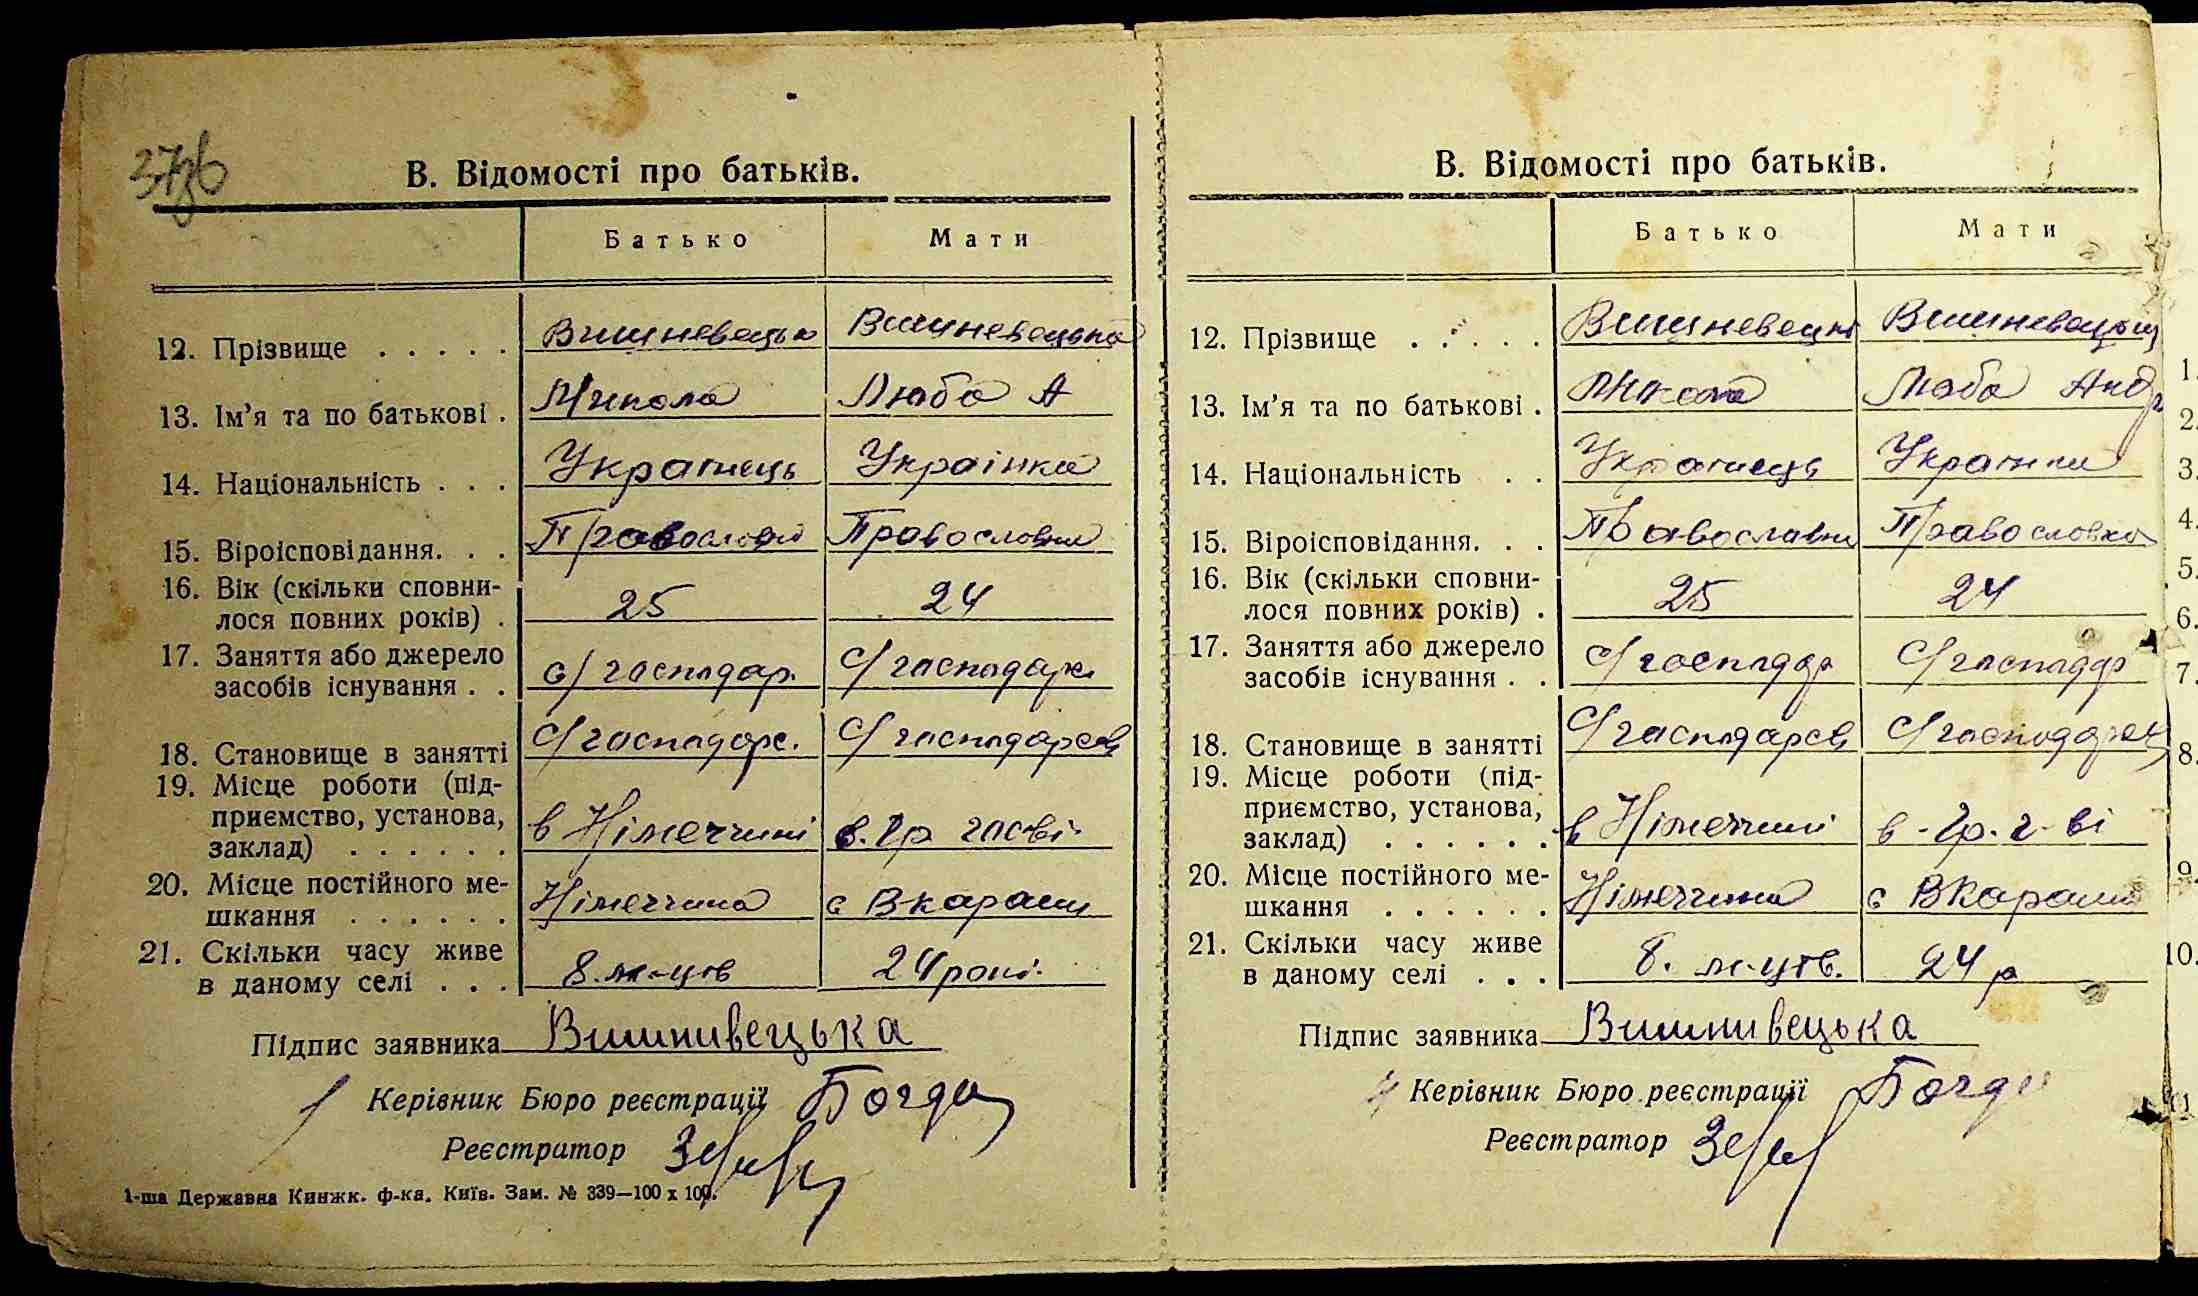 В. Відомості про батьків.
Батько Мати
12. Прізвище . . . . . Вишневецьк Вишневецька
13. Ім'я та по батькові . Микола Люба А
14. Національність . . . Українець Українка
15. Віроісповідання. . . Православн Православна
16. Вік (скільки сповни-
лося повних років) . 25 24
17. Заняття або джерело
засобів існування . . с/господар. с/господар
18. Становище в занятті с/господарс. с/господарств
19. Місце роботи (під-
приємство, установа,
заклад) . . . . . . в Німеччині в. гр госві
20. Місце постійного ме-
шкання . . . . . . Німеччина с Вкараши
21. Скільки часу живе
в даному селі . . . 8. м-ців 24 рокі.
Підпис заявника Вишнивецька
Керівник Бюро реєстрації
Реєстратор
1-ша Державна Кинжк. ф-ка. Київ. Зам. № 339—100 х 100.
В. Відомості про батьків.
Батько Мати
12. Прізвище . . . . . Вишневецьк Вишневецьк
13. Ім'я та по батькові . Микола Люба Андр
14. Національність . . Українець Українка
15. Віроісповідання. . . Православни Православна
16. Вік (скільки сповни-
лося повних років) . 25 24
17. Заняття або джерело
засобів існування . . с/господар с/господар
18. Становище в занятті с/господарств с/господарств
19. Місце роботи (під-
приємство, установа,
заклад) . . . . . . в Німеччині в - гр. г-ві
20. Місце постійного ме-
шкання . . . . . . Німеччина с Вкараши
21. Скільки часу живе
в даному селі . . . 8. м-ців. 24 р
Підпис заявника Вишнивецька
Керівник Бюро реєстрації
Реєстратор
1.
2.
3.
4.
5.
6.
7.
8.
9.
10.
11